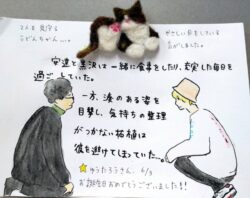 2人を見守る
うどんちゃん...。
やさしい目をしている
気がしました。
安達と黒沢は一緒に食事をしたり、充実した毎日を
過ごしていた。
一方、湊のある姿を
目撃し、気持ちの整理
がつかない柘植は
彼を避けてしまっていた...。
ゆうたろうさん、6/3
お誕生日おめでとうございました!!